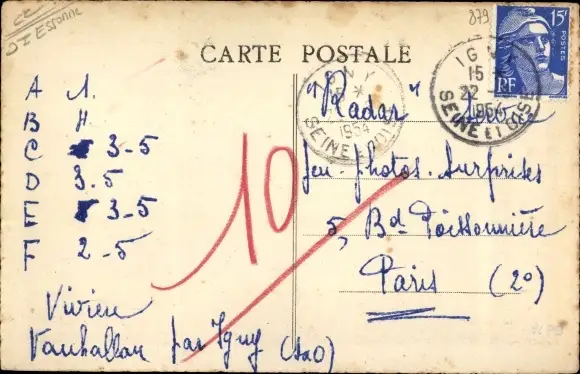 DZ Essonne
879
CARTE POSTALE
15F
POSTES
RF
IGNY
15 *
22
1954
SEINE ET OISE
IGNY
15 *
1954
SEINE ET OISE
A 1.
B 4
C 3-5
D 3.5
E 3-5
F 2-5
Vivien
Vauhallan par Igny (S&O)
10
"Radar"
Jeu-photos-Surprises
5, Bd Poissonnière
Paris (2°)